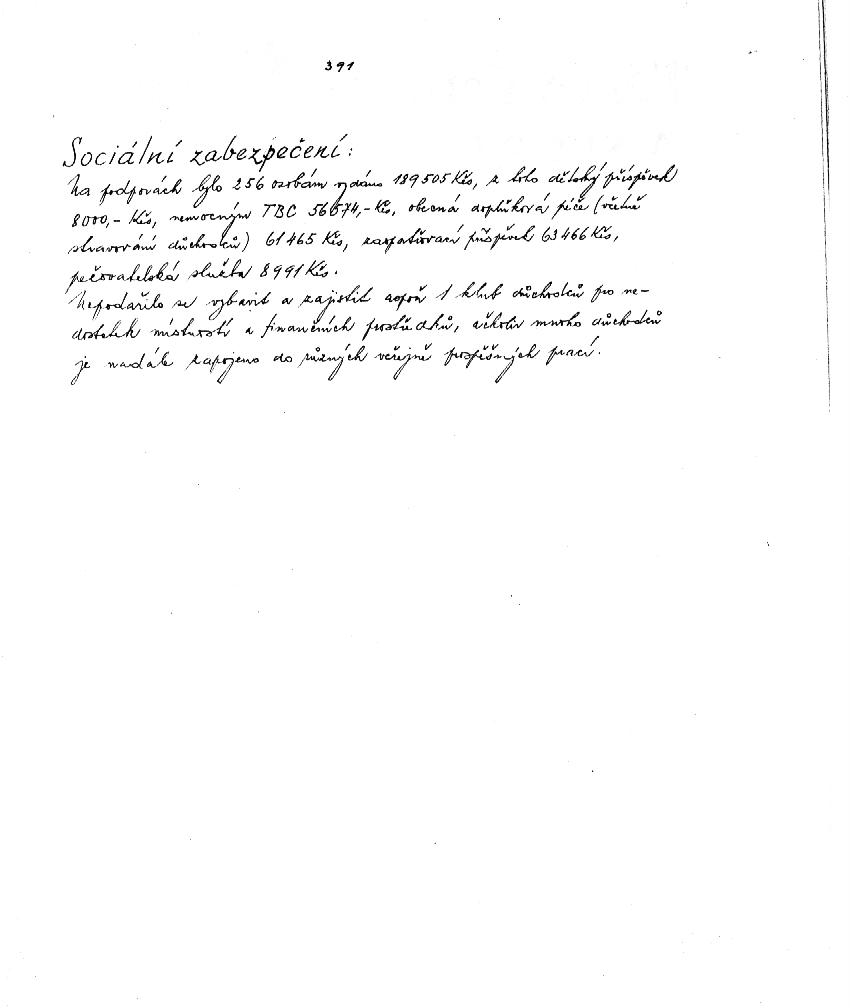 391
Sociální zabezpečení:
Na podporách bylo 256 osobám vydáno 189 505 Kčs, z toho dětský příspěvek
8000,- Kčs, nemocným TBC 56 574,- Kčs, obecná doplňková péče (včetně
stravování důchodců) 61 465 Kčs, zaopatřovací příspěvek 63 466 Kčs,
pečovatelská služba 8 991 Kčs.
Nepodařilo se vybavit a zajistit aspoň 1 klub důchodců pro ne-
dostatek místností a finančních prostředků, ačkoliv mnoho důchodců
je nadále zapojeno do různých veřejně prospěšných prací.